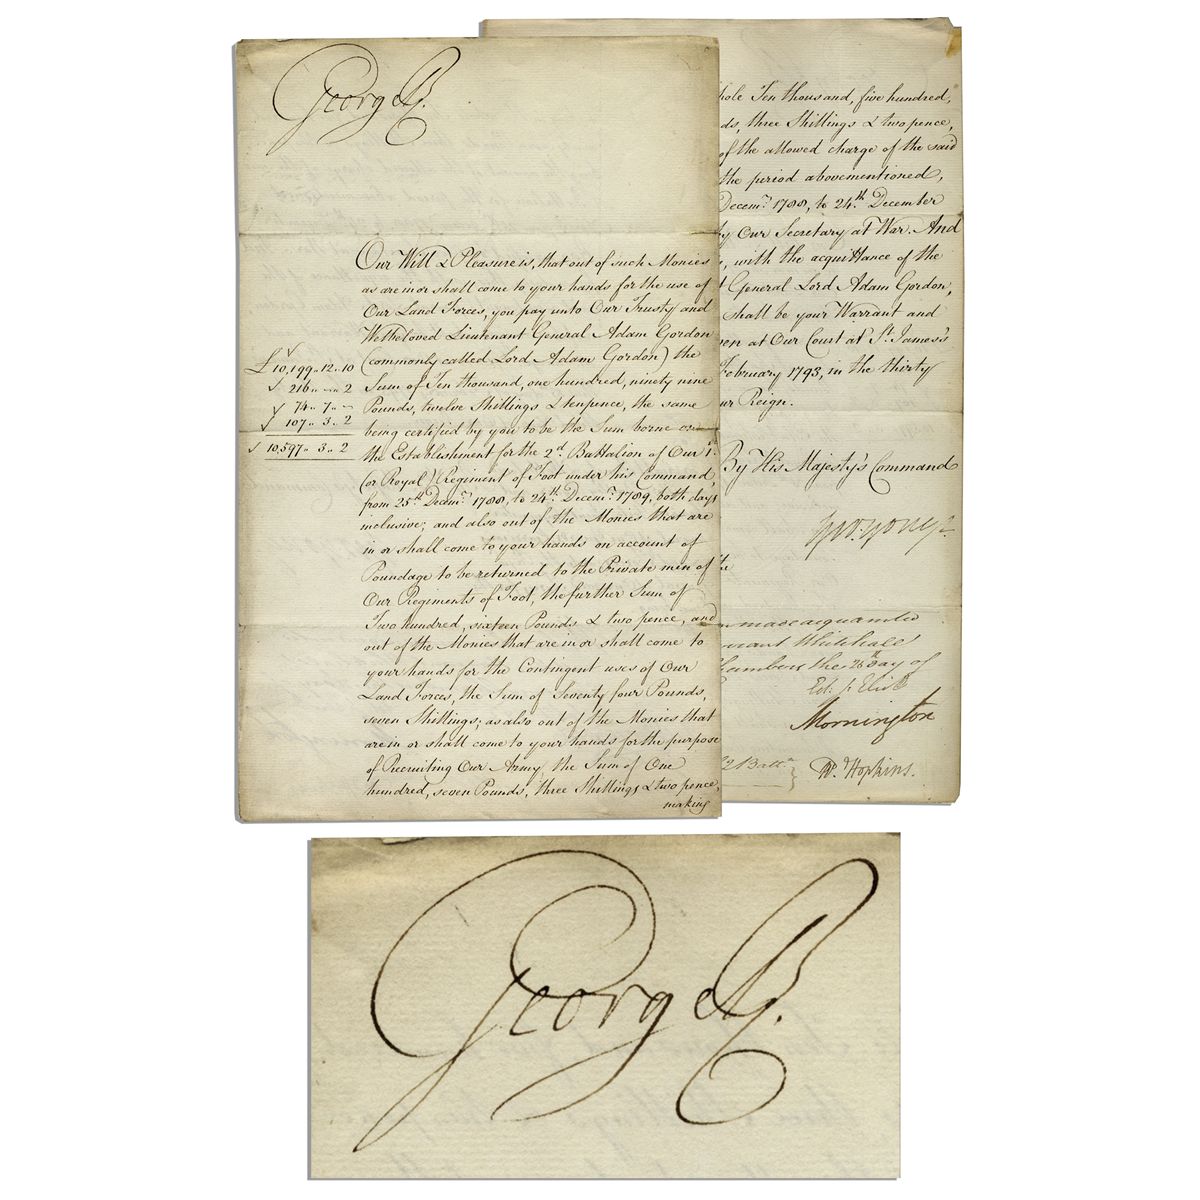 George R.
Our Will & Pleasure is, that out of such Monies
as are in or shall come to your hands for the use of
Our Land Forces, you pay unto Our Trusty and
Welbeloved Lieutenant General Adam Gordon
(commonly called Lord Adam Gordon) the
Sum of Ten thousand, one hundred, ninety nine
Pounds, twelve Shillings & tenpence, the same
being certified by you to be the Sum borne on
the Establishment for the 2d. Battalion of Our 1st.
(or Royal) Regiment of Foot under his Command,
from 25th. Decemr. 1788, to 24th. Decemr. 1789, both days
inclusive; and also out of the Monies that are
in or shall come to your hands on account of
Poundage to be returned to the Private men of
Our Regiments of Foot, the further Sum of
Two hundred, sixteen Pounds & two pence, and
out of the Monies that are in or shall come to
your hands for the Contingent uses of Our
Land Forces, the Sum of Seventy four Pounds,
seven Shillings; as also out of the Monies that
are in or shall come to your hands for the purpose
of Recruiting Our Army, the Sum of One
hundred, seven Pounds, three Shillings & two pence,
making
£10,199..12..10
216..-..2
74..7..-
107..3..2
10,597..3..2
hole Ten thousand, five hundred,
ds, three Shillings & two pence,
of the allowed charge of the said
the period abovementioned,
Decemr. 1788, to 24th. December
by Our Secretary at War. And
s, with the acquittance of the
t General Lord Adam Gordon,
shall be your Warrant and
en at Our Court at St. James's
February 1793, in the thirty
ur Reign.
By His Majesty's Command
Geo. Yonge
the
made acquainted
rrant Whitehall
Chambers the 26th day of
Ed. J. Eliot
Mornington
2 Battn.
R. Hopkins.
George R.